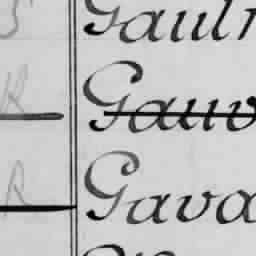 5 Gaul
R Gauv
R Gava